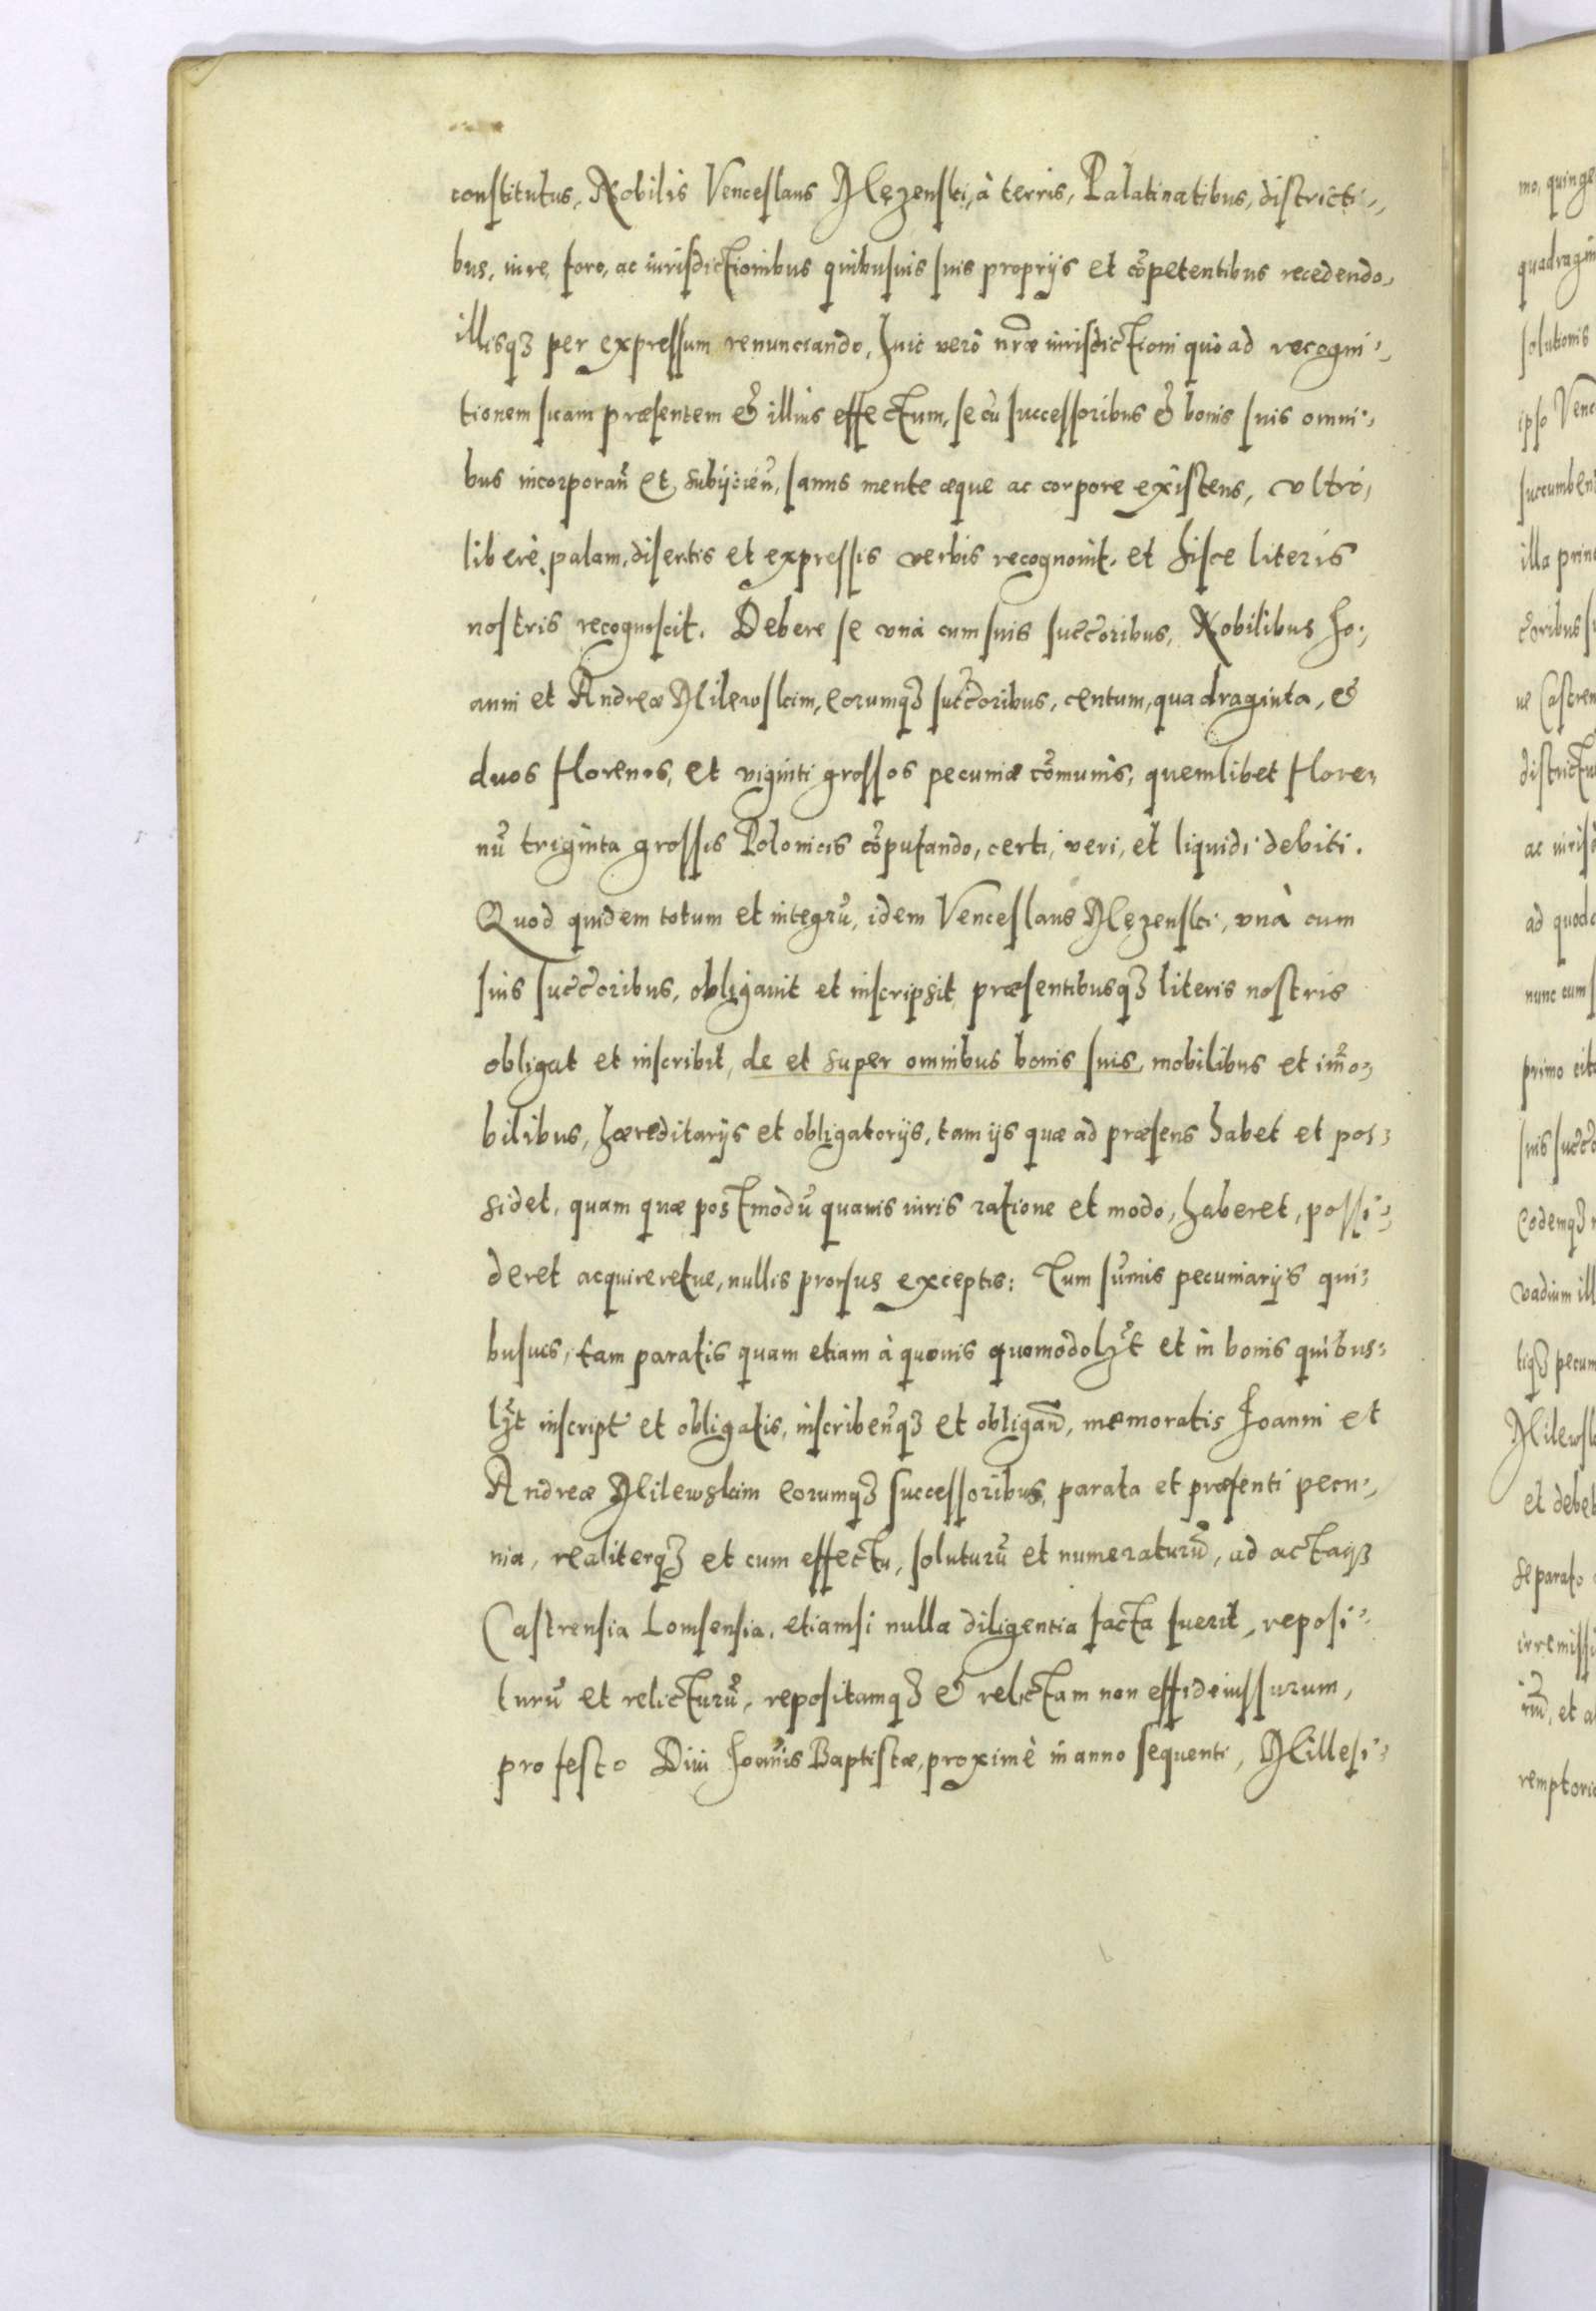 constitutus, Nobilis Venceslaus Mężenski, à terris, Palatinatibus, districti-
bus, iure, foro, ac iurisdictionibus quibusuis suis proprijs et cõpetentibus recedendo,
illisqȝ per expressum renunciando, huic verò nr̃æ iurisdictioni quò ad recogni-
tionem suam præsentem & illius effectum, se cũ successoribus & bonis suis omni-
bus incorporañ et subijcieñ, sanus mente æque ac corpore existens, vltrò,
liberè, palam, disertis et expressis verbis recognouit, et hisce literis
nostris recognoscit. Debere se vnà cum suis succ̃oribus, Nobilibus Io-
anni et Andreæ Milewskim, eorumqȝ succ̃oribus, centum, quadraginta, &
duos florenos, et viginti grossos pecuniæ cõmunis, quemlibet flore-
nũ triginta grossis Polonicis cõputando, certi, veri, et liquidi debiti.
Quod quidem totum et integrũ, idem Venceslaus Mężenski, vnà cum
suis succ̃oribus, obligauit et inscripsit, præsentibusqȝ literis nostris
obligat et inscribit, de et super omnibus bonis suis, mobilibus et im̃o-
bilibus, hæreditarijs et obligatorijs, tam ijs quæ ad præsens habet et pos-
sidet, quam quæ postmodũ quauis iuris ratione et modo, haberet, possi-
deret acquireretue, nullis prorsus exceptis: Tum sũmis pecuniarijs qui-
busuis, tam paratis quam etiam à quouis quomodolȝt et in bonis quibus-
lȝt inscript et obligatis, inscribeñqȝ et obligañ, memoratis Ioanni et
Andreæ Milewskim eorumqȝ successoribus, parata et præsenti pecu-
nia, realiterqȝ et cum effectu, soluturũ et numeraturũ, ad actaqȝ
Castrensia Lomsensia, etiamsi nulla diligentia facta fuerit, reposi-
turũ et relicturũ, repositamqȝ & relictam non effideiussurum,
pro festo Diui Ioañis Baptistæ, proximè in anno sequenti, Millesi-